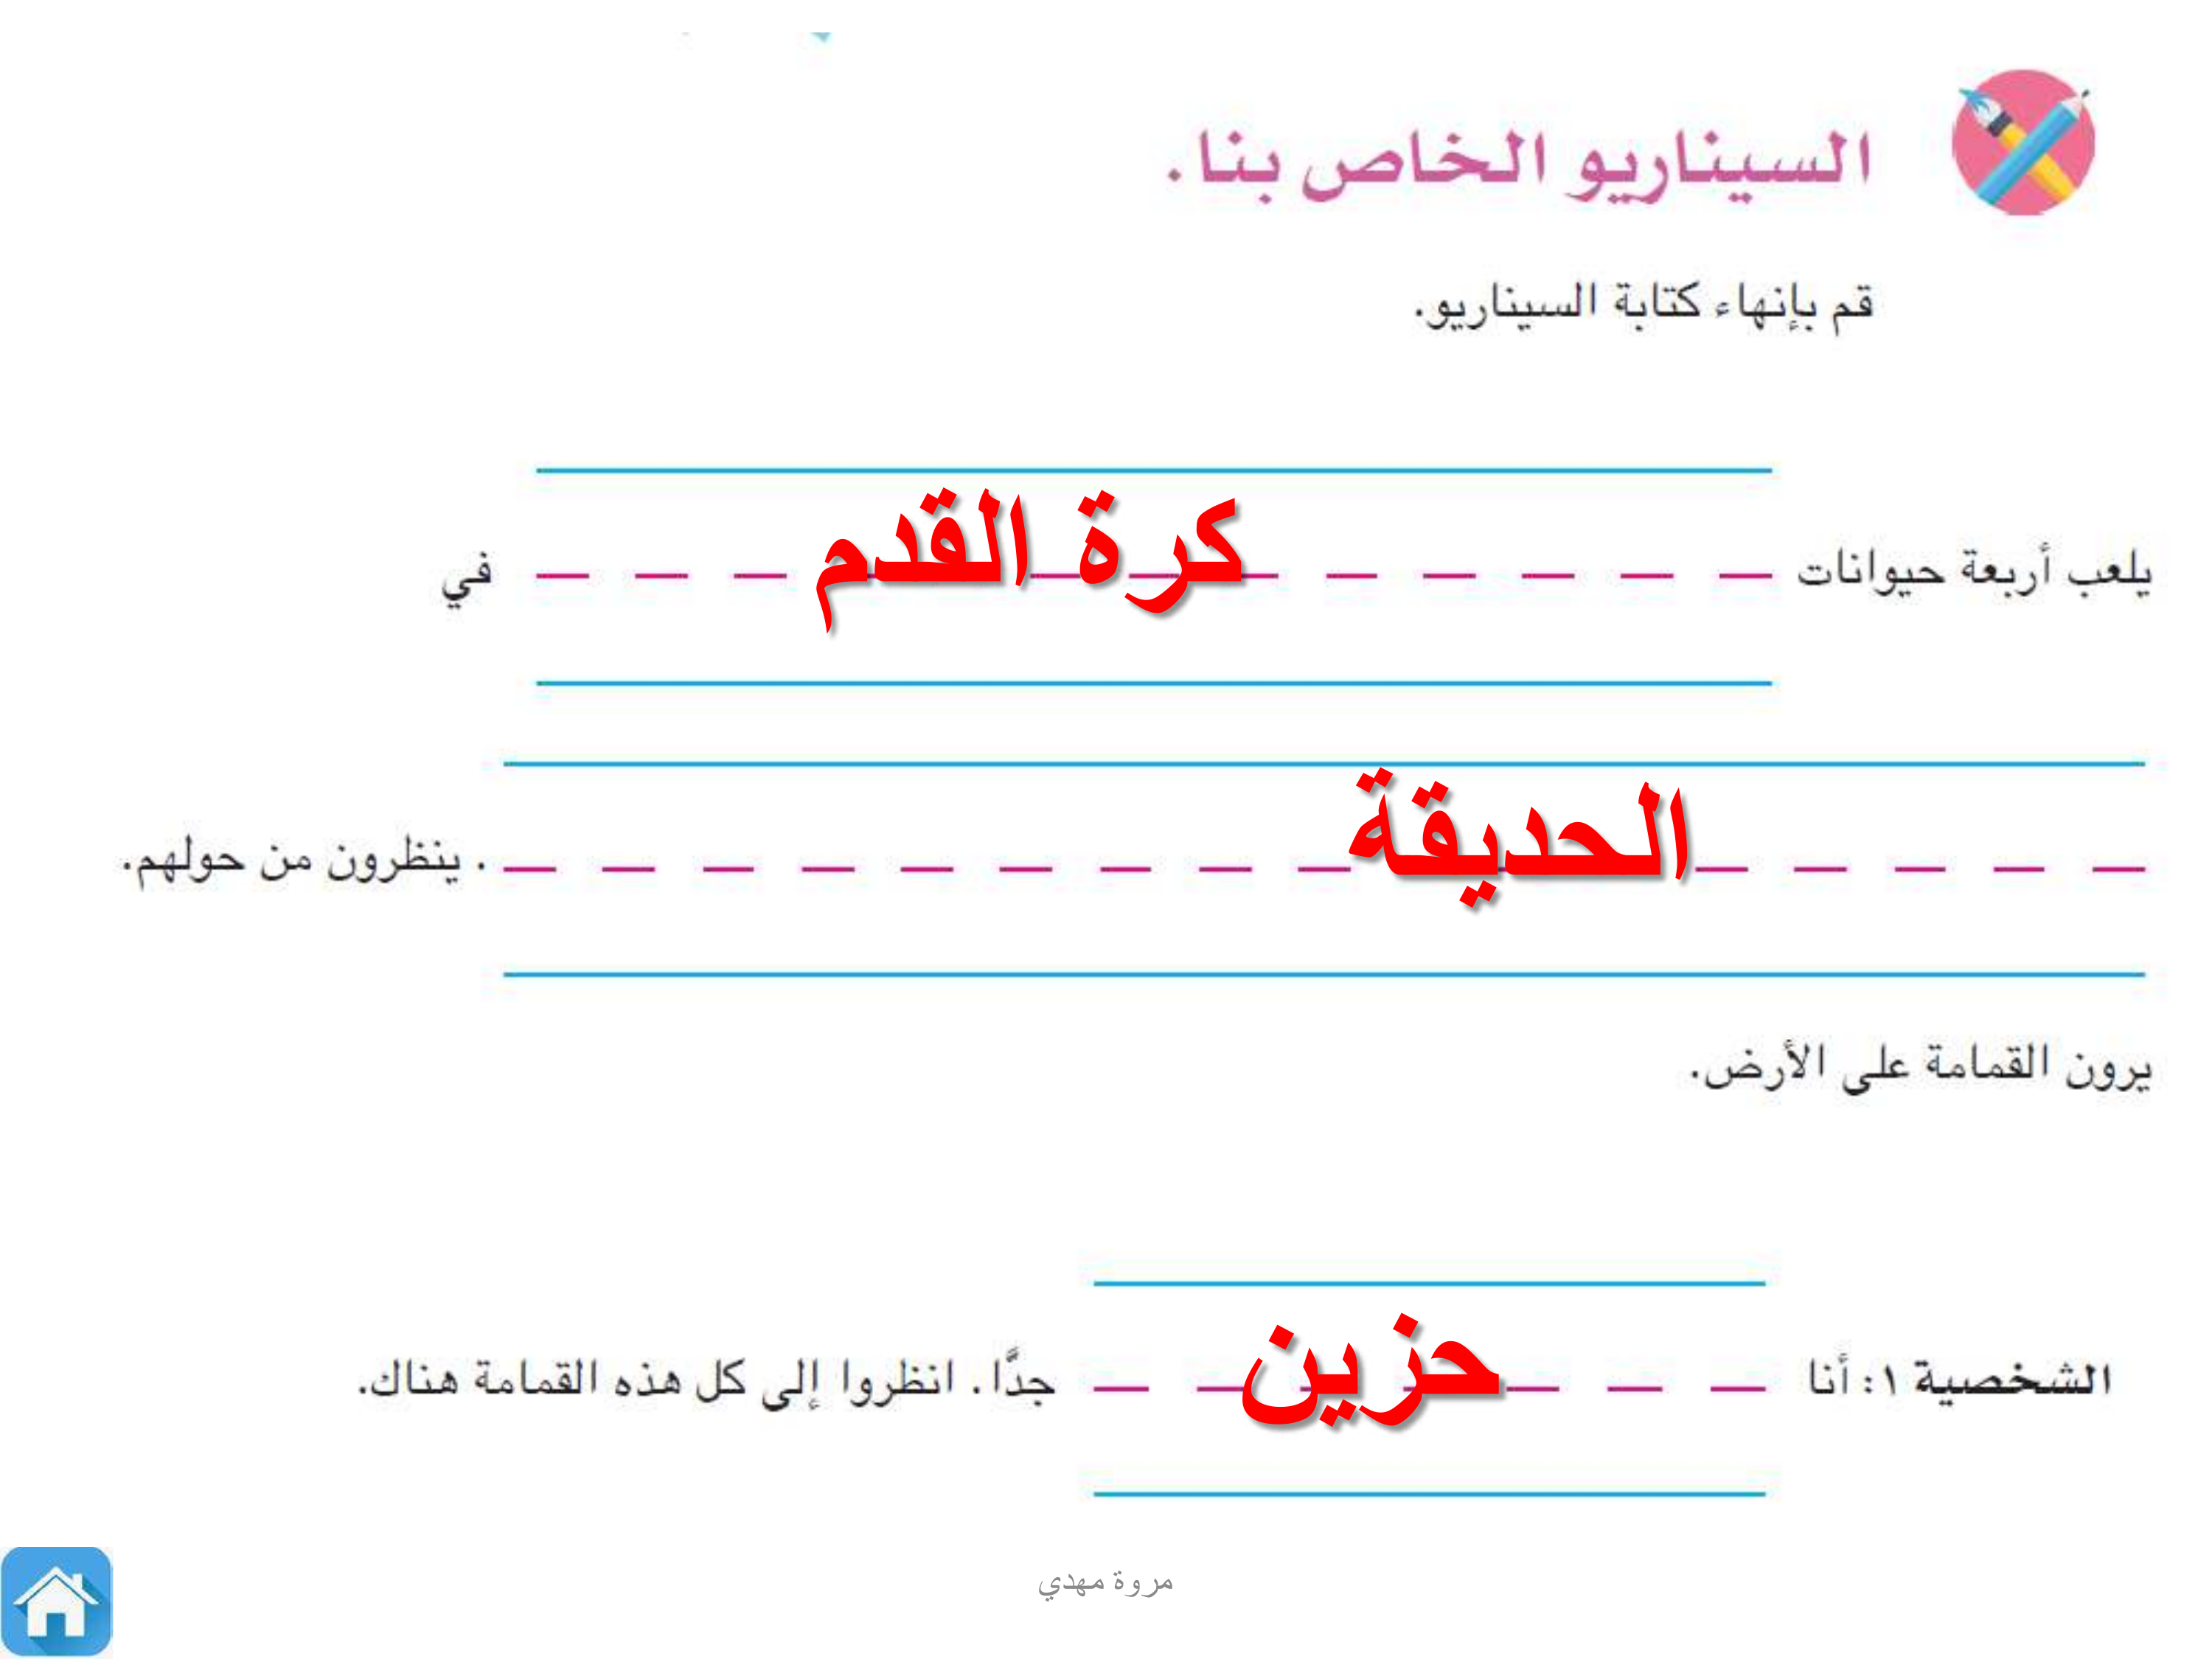 السيناريو الخاص بنا.
قم بإنهاء كتابة السيناريو.
يلعب أربعة حيوانات كرة القدم في
الحديقة . ينظرون من حولهم.
يرون القمامة على الأرض.
الشخصية ١: أنا حزين جدًّا. انظروا إلى كل هذه القمامة هناك.
مروة مهدي